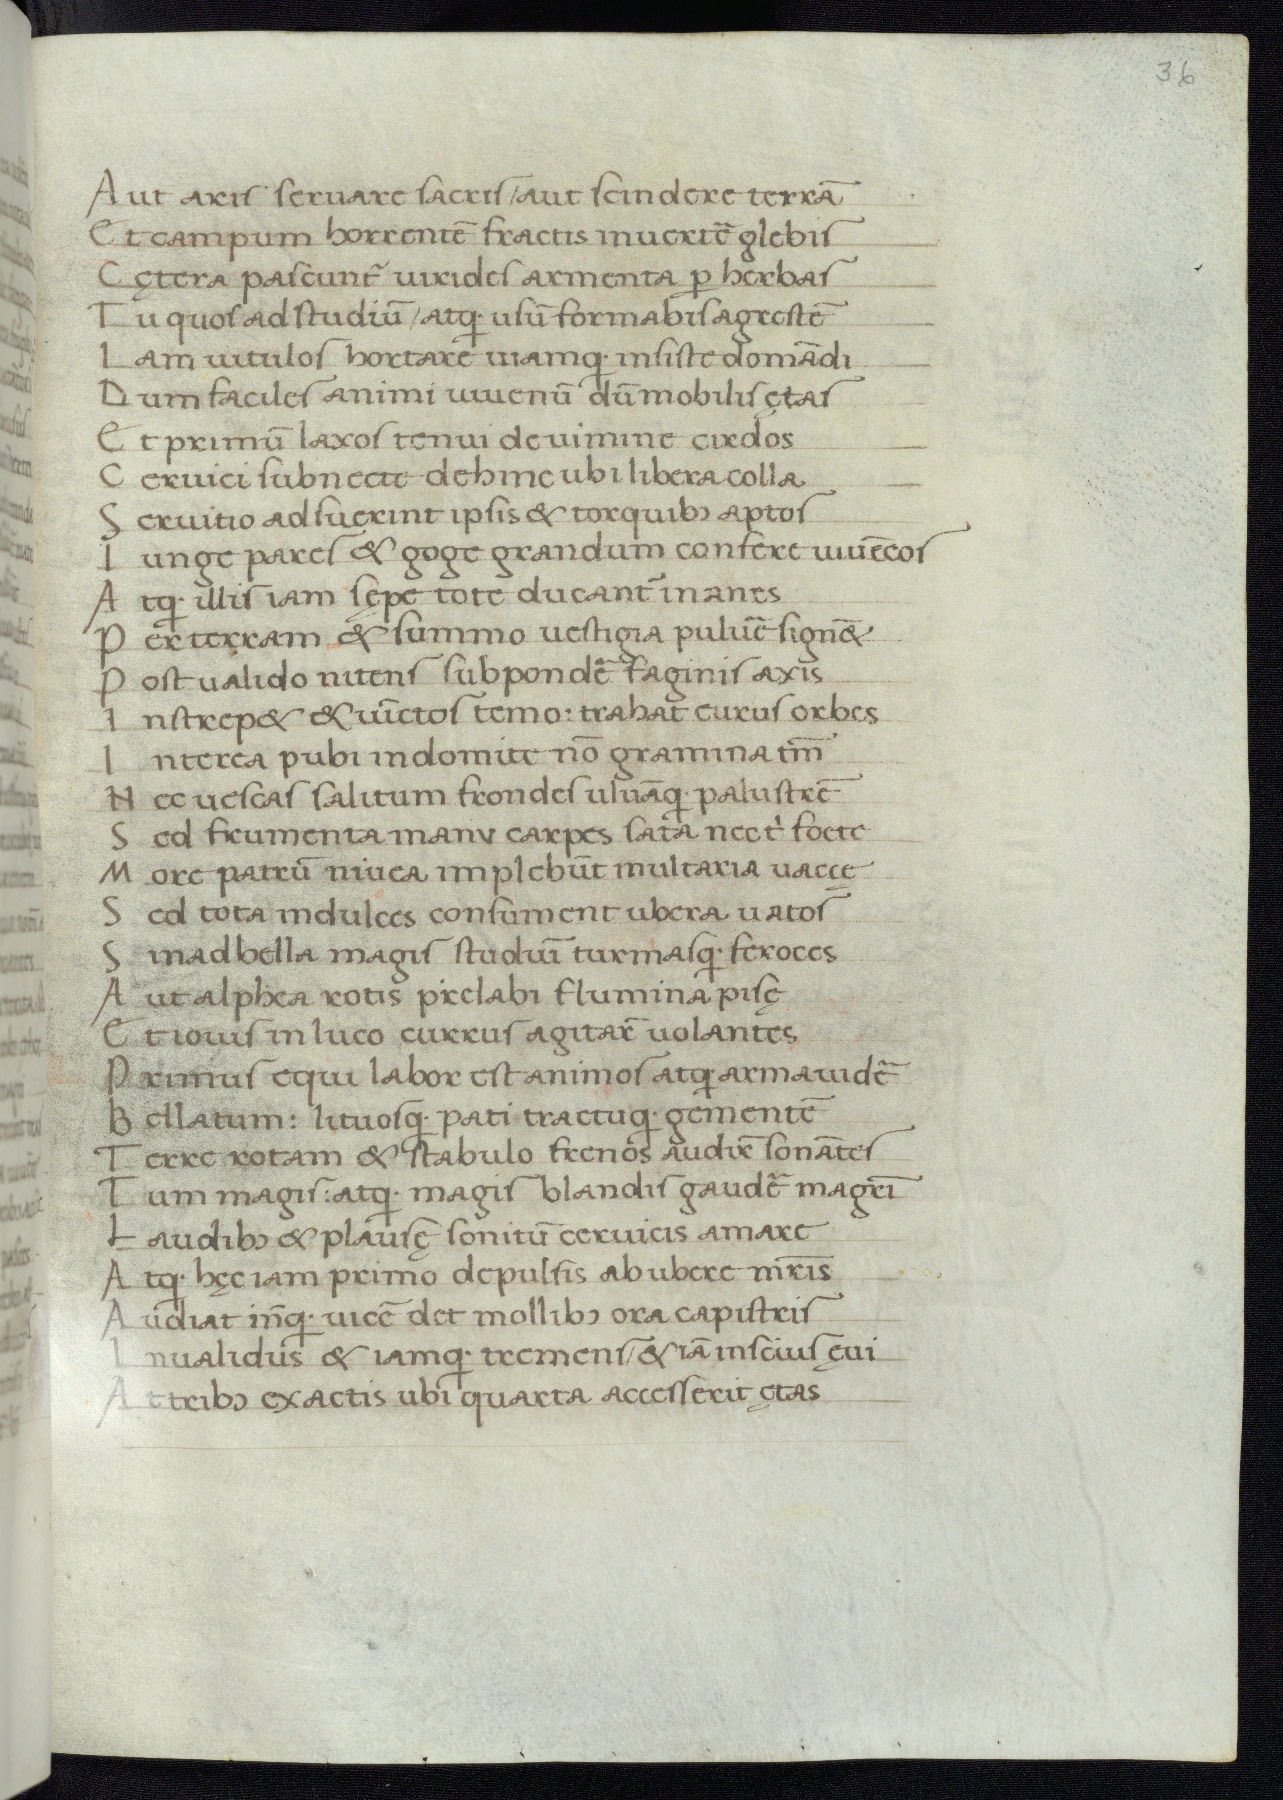 36
Aut aris seruare sacris / aut scindere terrā
Et campum horrentē fractis inuertē glebis
Cętera pascunt̄ uirides armenta ꝑ herbas
Tu quos ad studiū / atq· usū formabis agrestē
Iam uitulos hortare uiamq· insiste domādi
Dum faciles animi iuuenū dū mobilis ętas
Et primū laxos tenui de uimine circlos
Ceruici subnecte dehinc ubi libera colla
Seruitio adsuerint ipsis & torquibꝫ aptos
Iunge pares & goge grandum consere iuuēcos
Atq· illis iam sępe totę ducant̄ inanes
Per terram & summo uestigia puluē sign&
Post ualido nitens sub pondē faginis axis
Instrep& & uīctos temo: trahat currus orbes
Interea pubi indomite nō gramina tm̄
Nec uescas salitum frondes uluāq· palustrē
Sed frumenta manu carpes sata nec t' foete
More patrū niuea implebūt multaria uaccę
Sed tota in dulces consument ubera natos
Sin ad bella magis studiū turmasq· feroces
Aut alphea rotis prelabi flumina pisę
Et iouis in luco currus agitar̄ uolantes
Primus equi labor est animos atq· arma uidē
Bellatum: lituosq· pati tractuq· gementē
Ferre rotam & stabulo frenos audir̄ sonātes
Tum magis: atq· magis blandis gaudē magr̄i
Laudibꝫ & plausę sonitū ceruicis amare
Atq· hęc iam primo depulsis ab ubere mr̄is
Audiat inq· uicē det mollibꝫ ora capistris
Inualidus & iamq· tremens / & iā inscius ęui
At tribꝫ exactis ubi quarta accesserit ętas